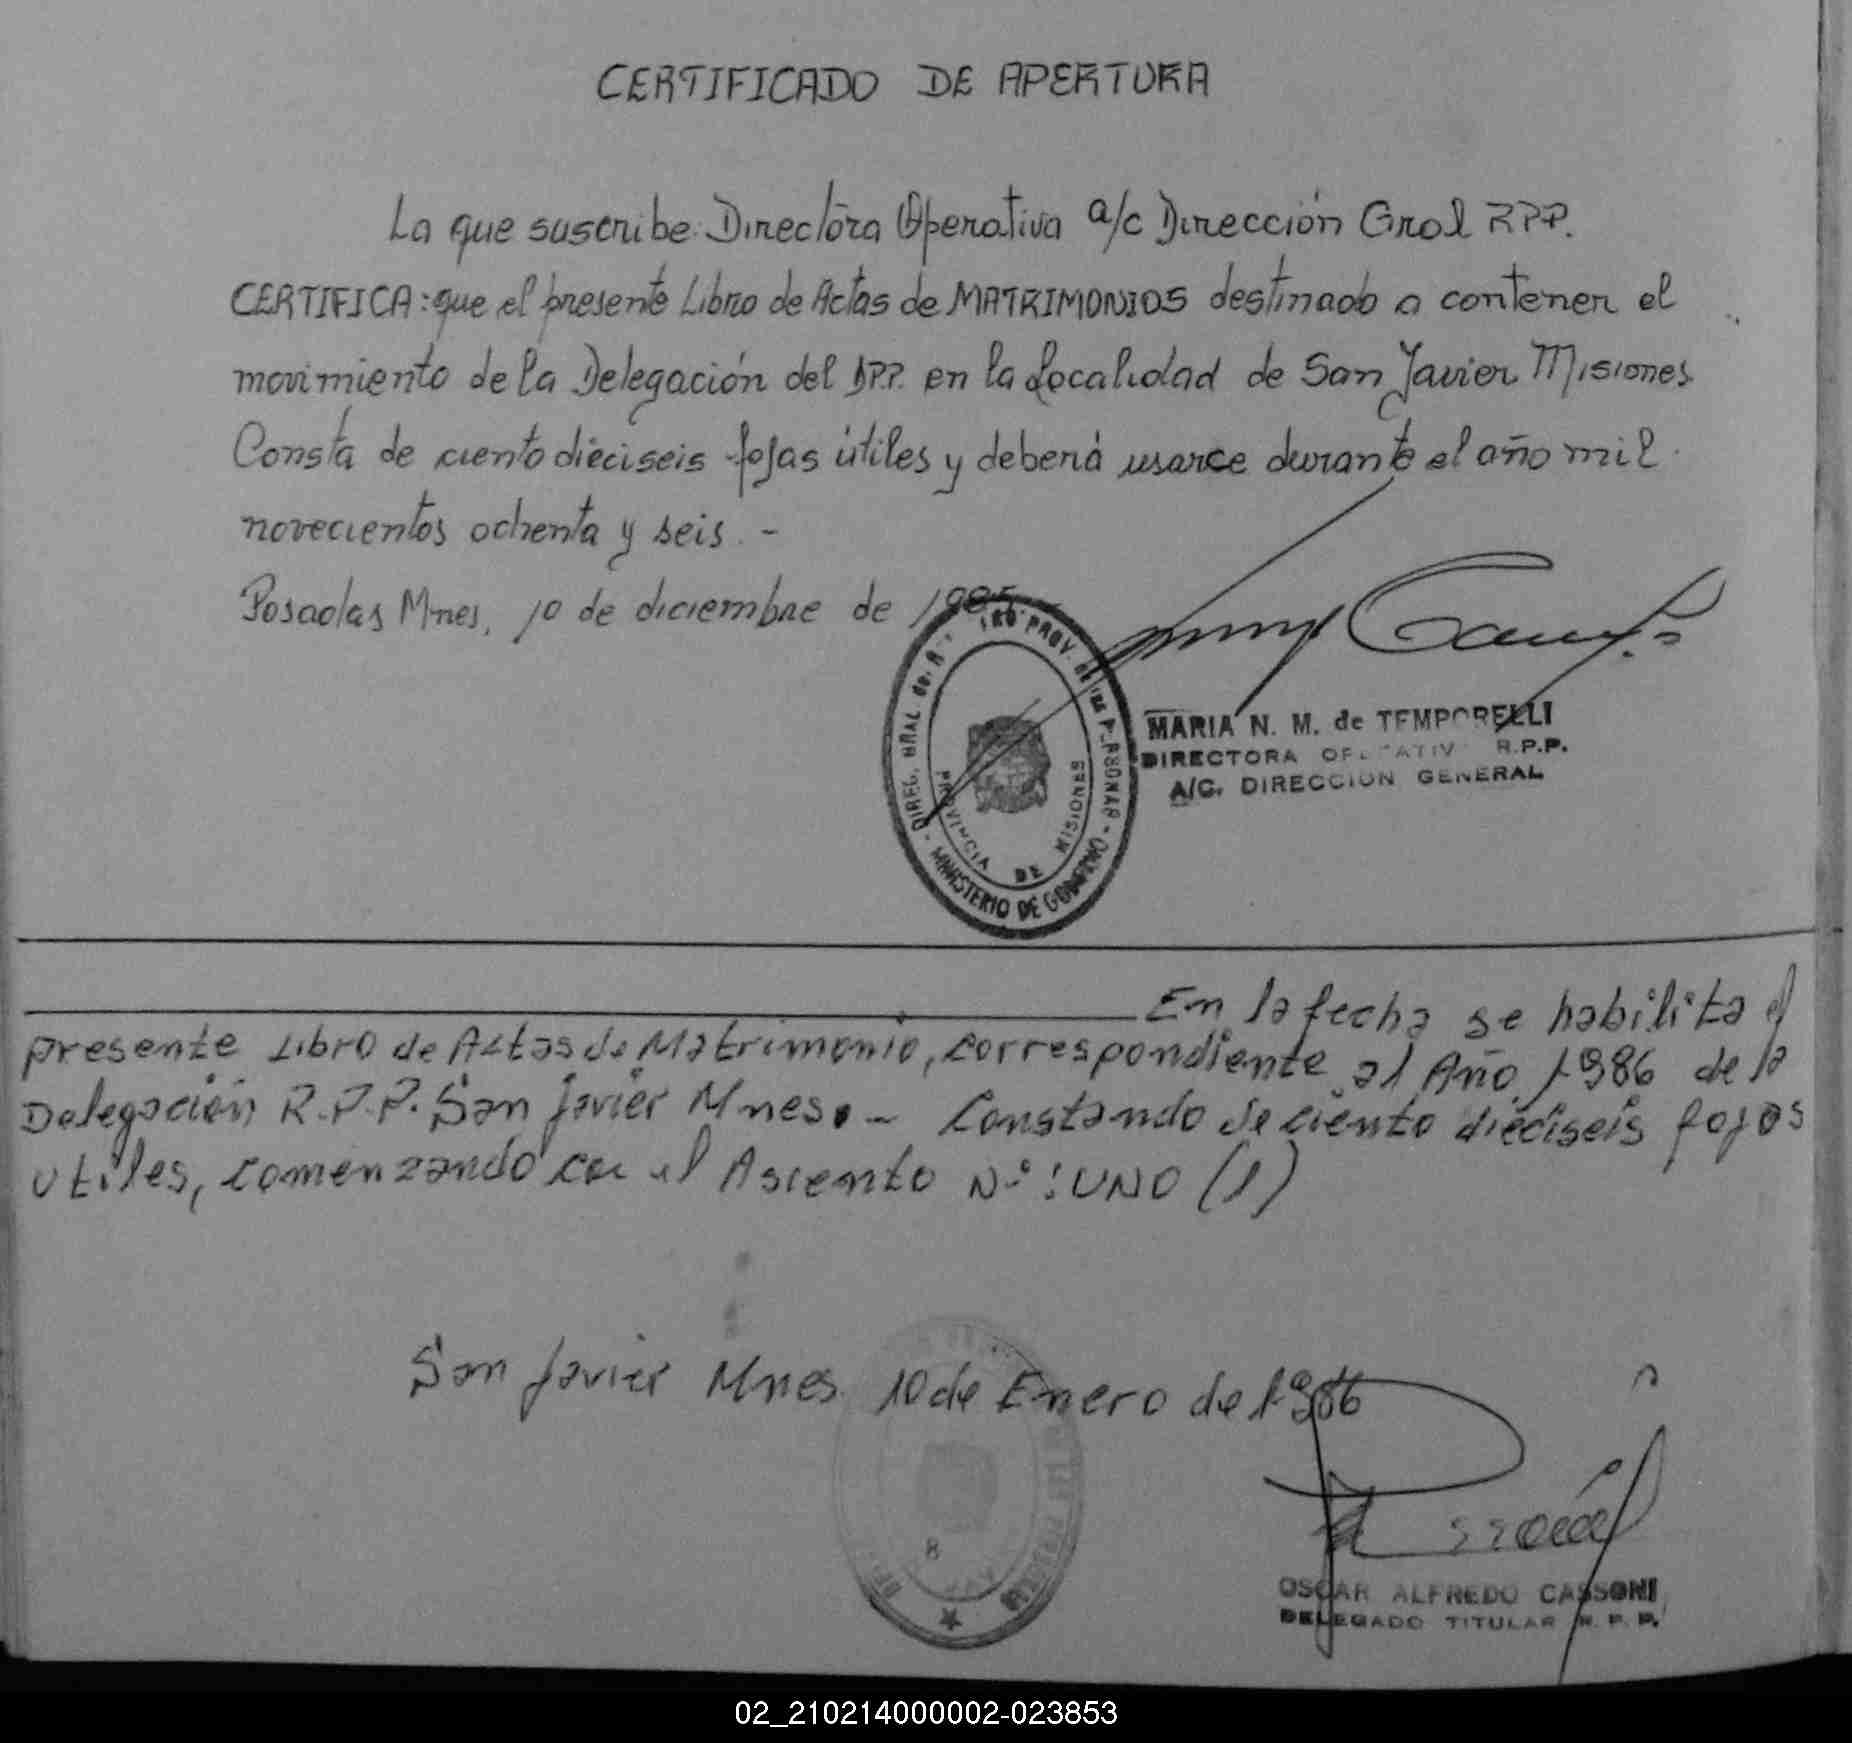 CERTIFICADO DE APERTURA
La que suscribe: Directora Operativa a/c Dirección Gral RPP.
CERTIFICA: que el presente Libro de Actas de MATRIMONIOS destinado a contener el
movimiento de la Delegación del RPP. en la Localidad de San Javier Misiones
Consta de ciento dieciseis fojas útiles y deberá usarce durante el año mil
novecientos ochenta y seis. -
Posadas Mnes, 10 de diciembre de 1985
MARIA N. M. de TEMPORELLI
DIRECTORA OPERATIVA R.P.P.
A/C. DIRECCION GENERAL
PROVINCIA DE MISIONES
MINISTERIO DE GOBIERNO
En la fecha se habilita el
presente Libro de Actas de Matrimonio, correspondiente al Año 1986 de la
Delegación R.P.P. San Javier Mnes. - Constando de ciento dieciseis fojas
utiles, comenzando con el Asciento Nº: UNO (1)
San Javier Mnes. 10 de Enero de 1986
OSCAR ALFREDO CASSONI
DELEGADO TITULAR R. P. P.
02_210214000002-023853